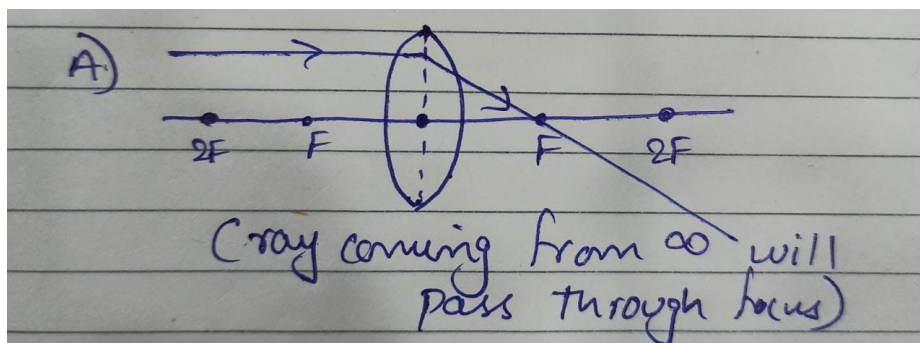 A)
2F F F 2F
(ray coming from ∞ will
pass through focus)